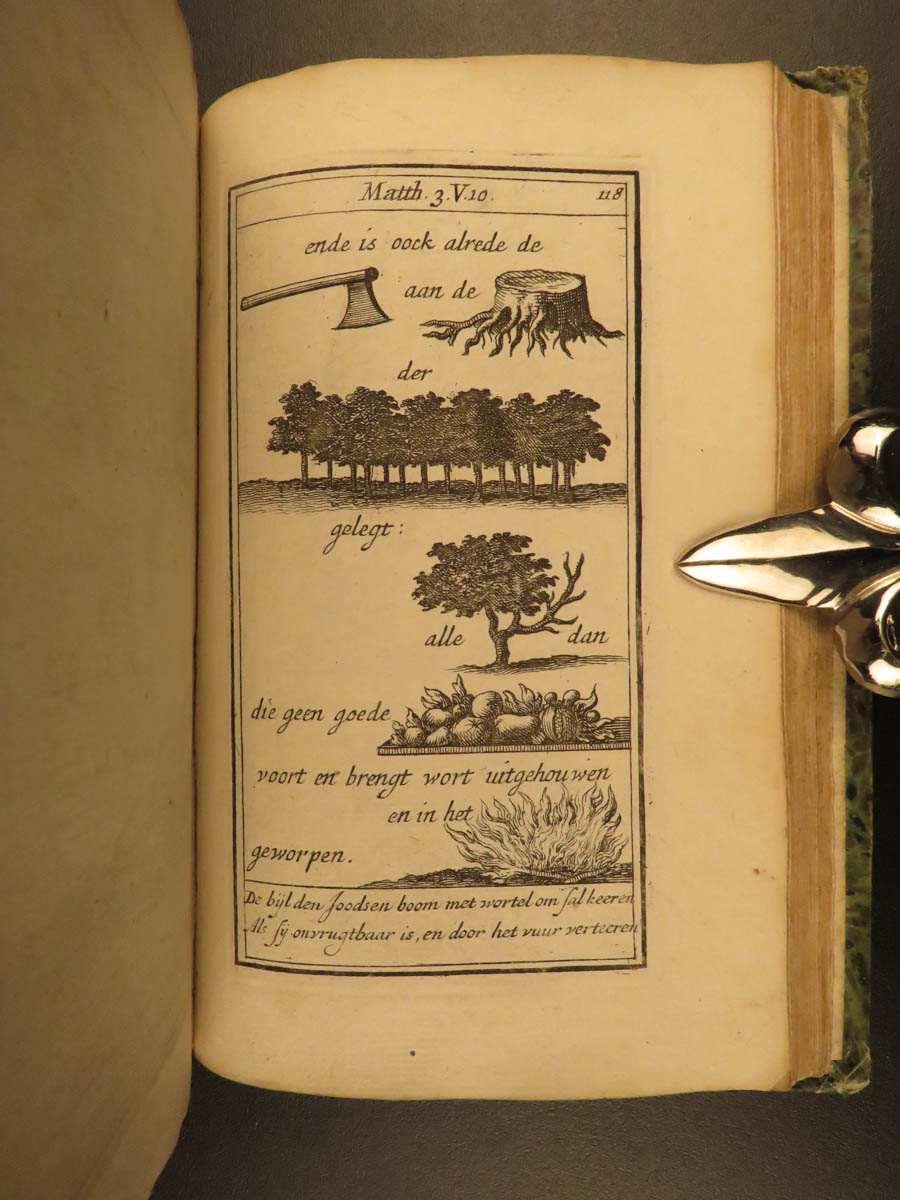 Matth. 3. V. 10. 118
ende is oock alrede de
aan de
der
gelegt:
alle dan
die geen goede
voort en brengt wort uitgehouwen
en in het
geworpen.
De bijl den Joodsen boom met wortel om sal keeren
Als sij onvrugtbaar is, en door het vuur verteeren